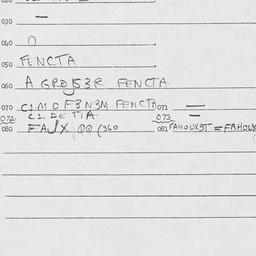 030 —
040 O
050 FENCTA
060 AGROJSER FENCTA
070 C1MOF3N3M FENCTA 071 —
072 C1 DETIA 073 —
080 FAJX QQ (360 081 FAHOUXST = FAHOUX